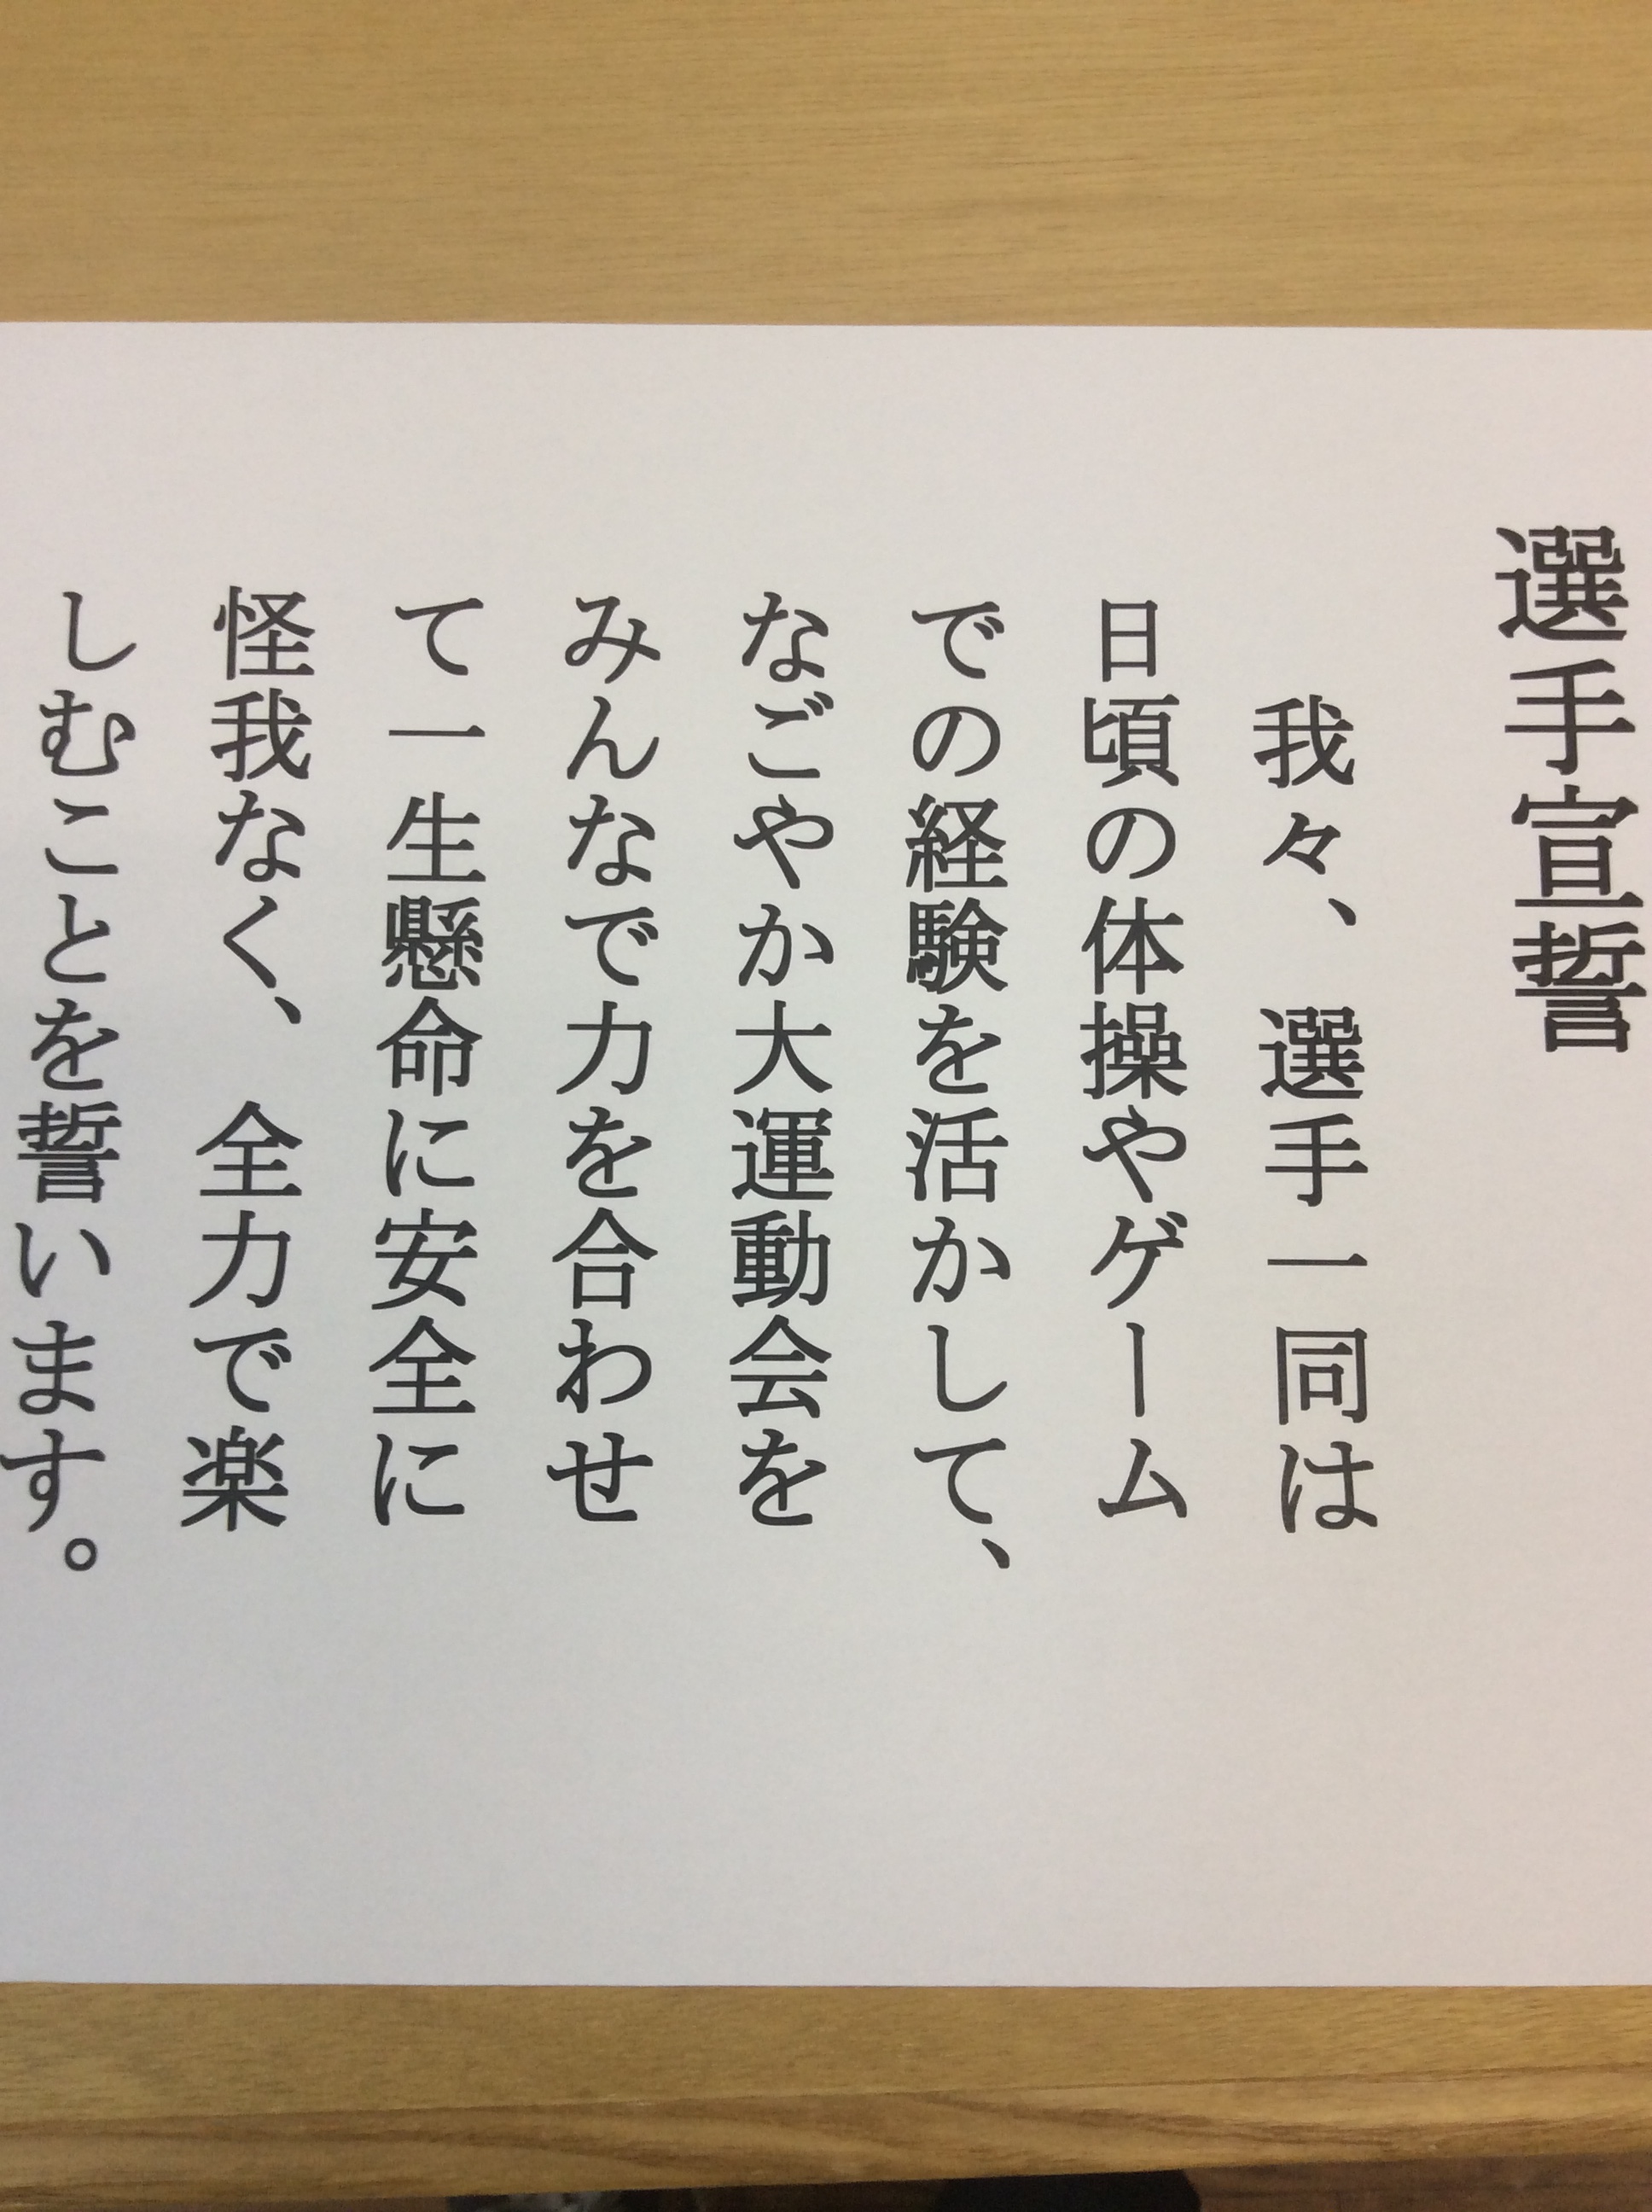 選手宣誓
我々、選手一同は
日頃の体操やゲーム
での経験を活かして、
なごやか大運動会を
みんなで力を合わせ
て一生懸命に安全に
怪我なく、全力で楽
しむことを誓います。